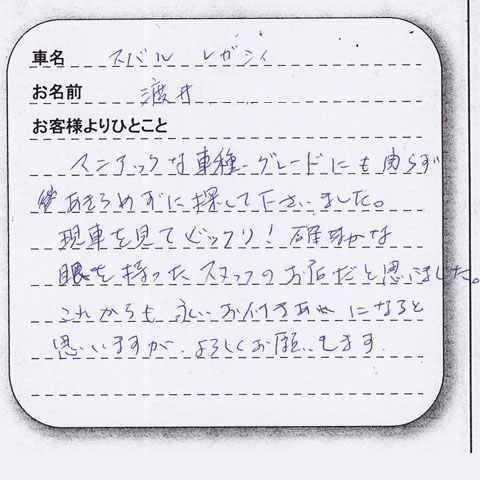 車名 スバル レガシィ
お名前 渡井
お客様よりひとこと
マニアックな車種・グレードにも関らず
あきらめずに探して下さいました。
現車を見てビックリ!確かな
眼を持ったスタッフのお店だと思いました。
これからも永いお付きあいになると
思いますが、よろしくお願いします.